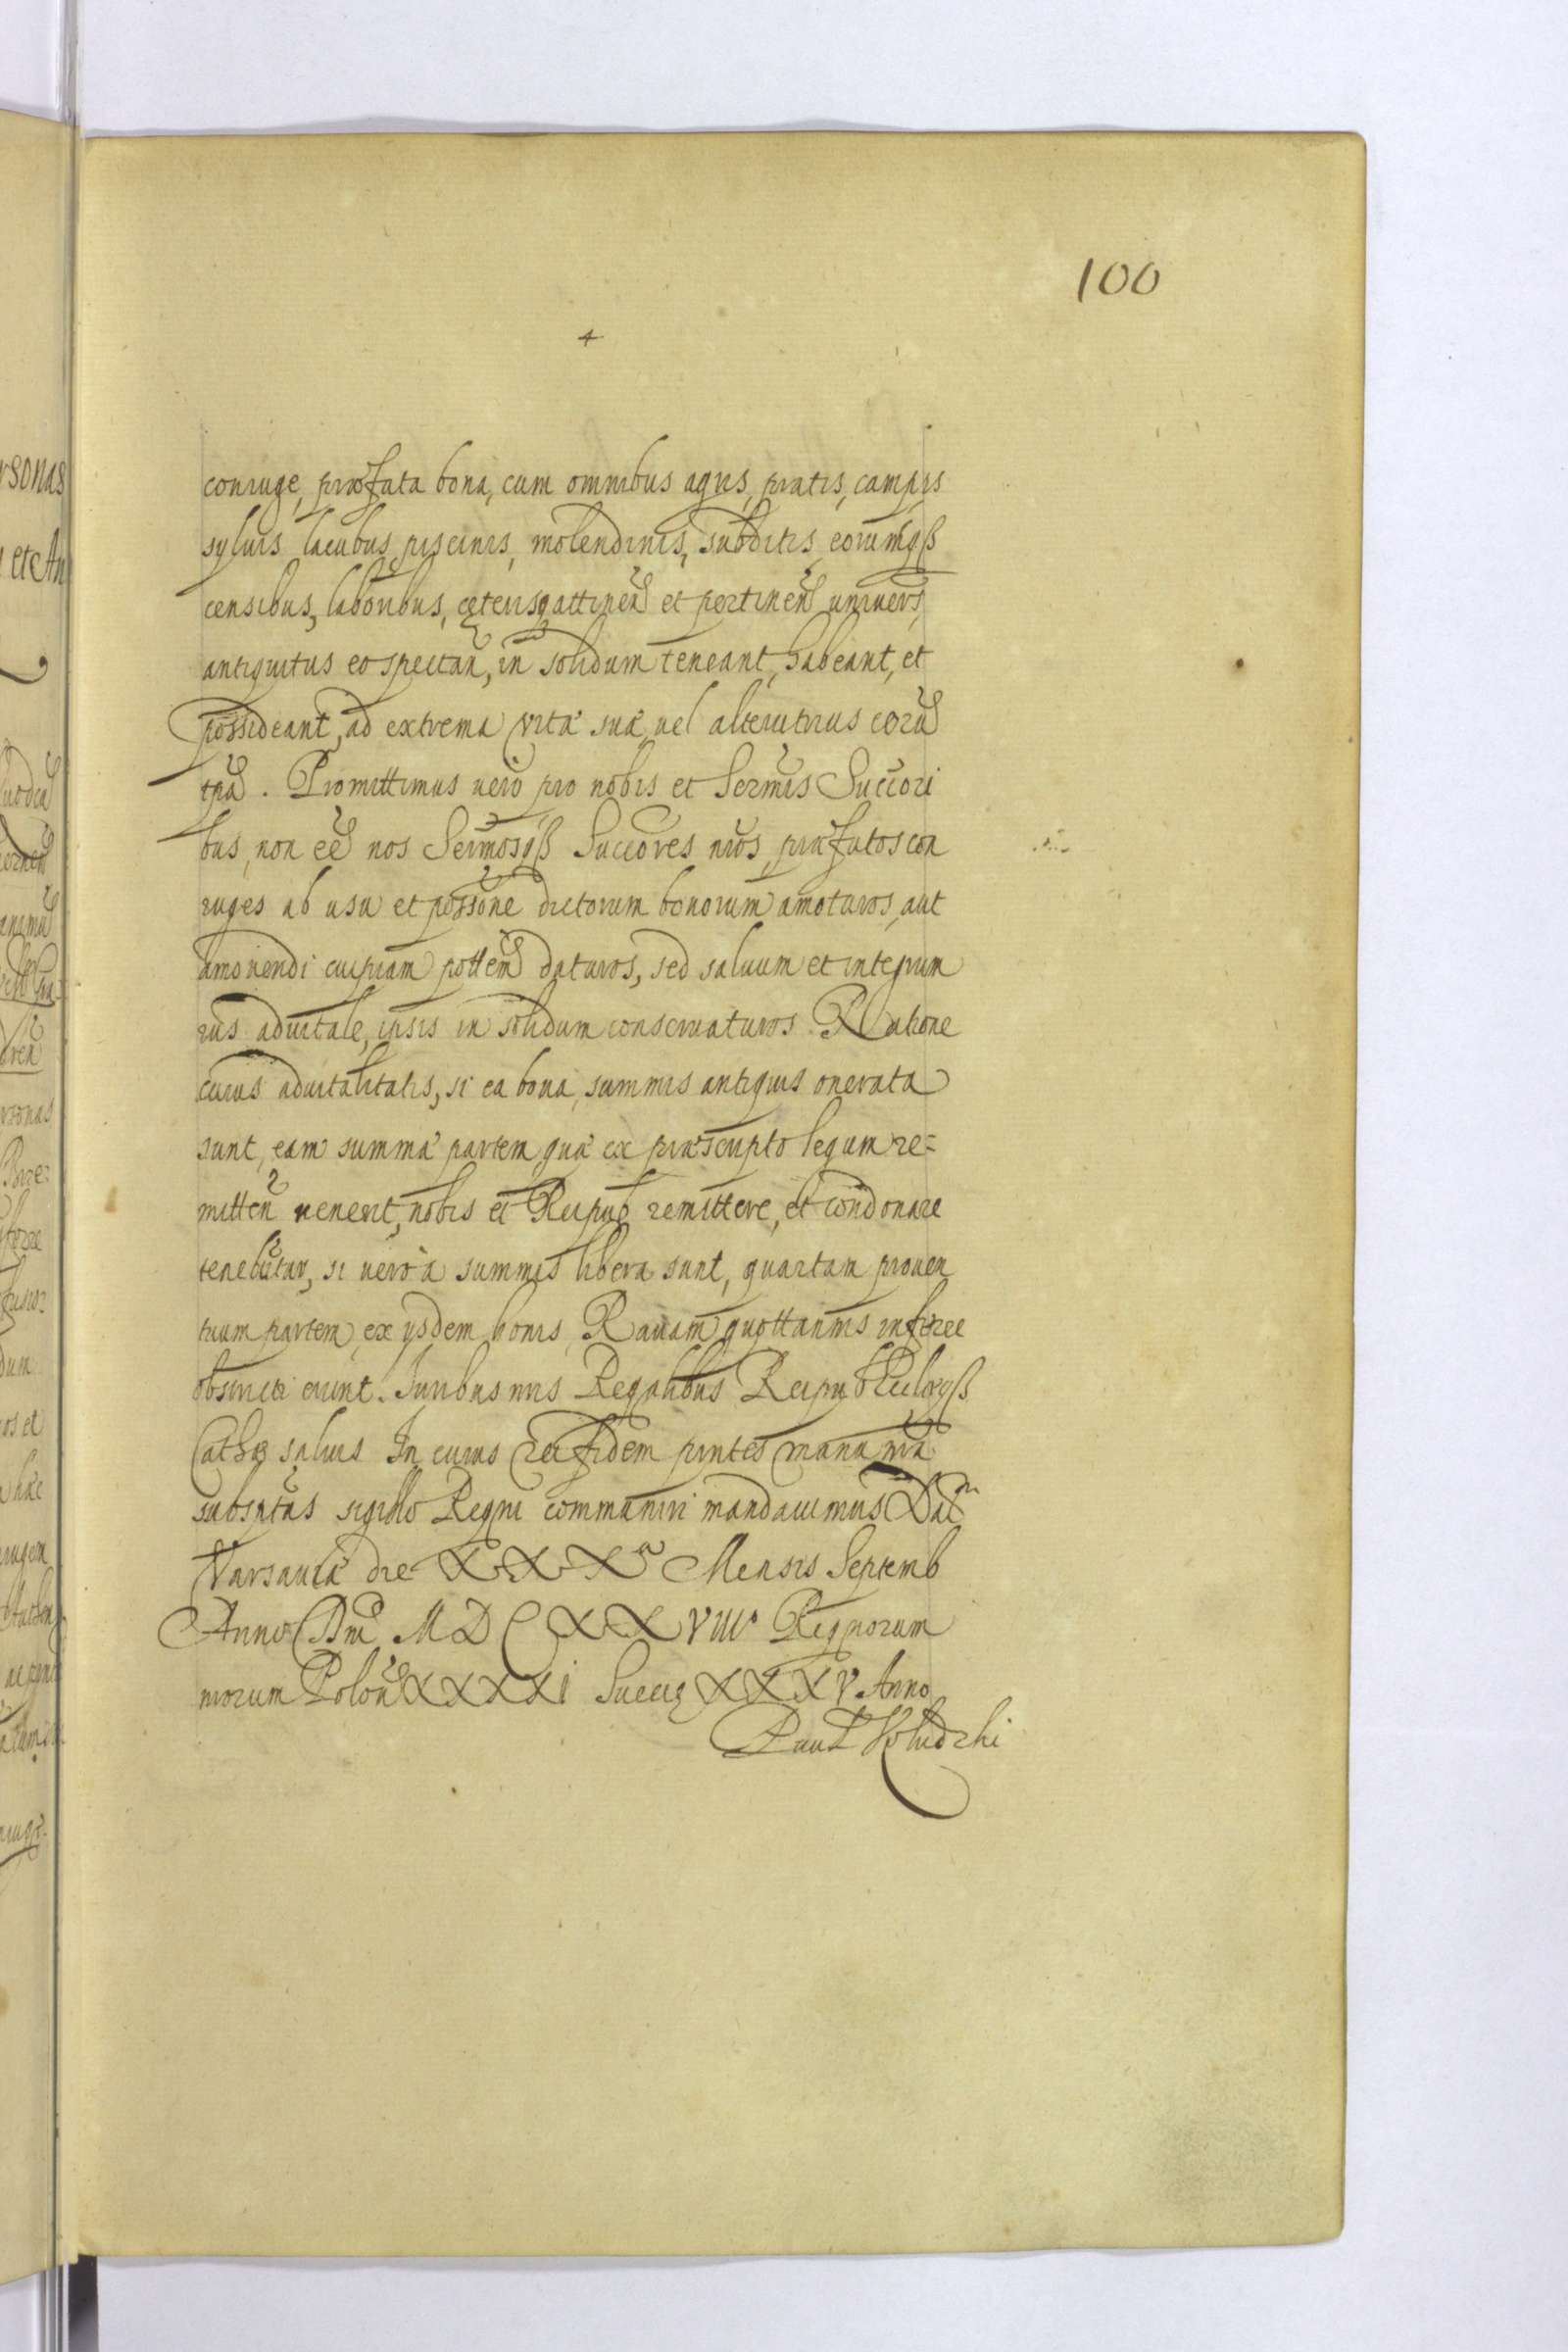 100
4
coniuge, præfata bona, cum omnibus agris, pratis, campis
syluis lacubus piscinis, molendinis, subditis eorumqß
censibus, laboribus, cęterisq attinen̄ et pertinen̄ univers,
antiquitus eo spectan̄, in solidum teneant, habeant, et
possideant, ad extrema vitæ suæ, uel alterutrius eorū
tpa. Promittimus uero pro nobis et Sermis Succori
bus, non eē nos Sermosqß Succores nros, præfatos con
iuges ab usu et possone dictorum bonorum amoturos, aut
amouendi cuipiam pottem daturos, sed saluum et integrum
ius aduitale, ipsis in solidum conseruaturos. Ratione
cuius aduitalitatis, si ea bona, summis antiquis onerata
sunt, eam summæ partem, quæ ex præscripto legum re=
mitten̄ uenerit, nobis et Reipub remittere, et condonare
tenebūtur, si uero à summis libera sunt, quartam prouen
tuum partem, ex ysdem bonis, Rauam quottannis inferre
obstricti erunt. Juribus nris Regalibus Reipub Eccleqß
Cathæ saluis In cuius rei fidem pntes manu nra
subsptas sigillo Regni communiri mandauimus Dat
Varsauiæ die XXXa Mensis Septemb
Anno Dni MDCXXVIII Regnorum
nrorum Polon̄ XXXXI Suecię XXXV Anno
Paul Wołudzki